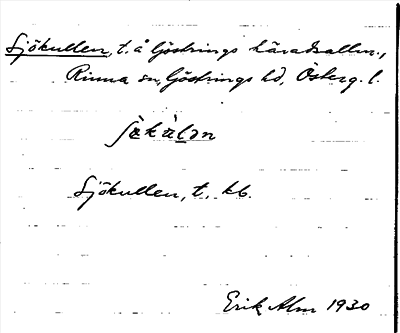 Sjökullen, t. å Göstrings häradsallm.,
Rinna sn, Göstrings hd, Österg. l.
Sjökullen, t., kb.
Erik Alm 1930